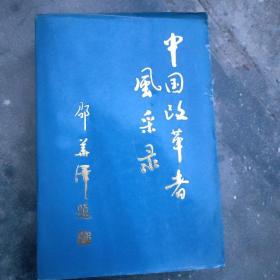 中国改革者
風采录
邵華泽題